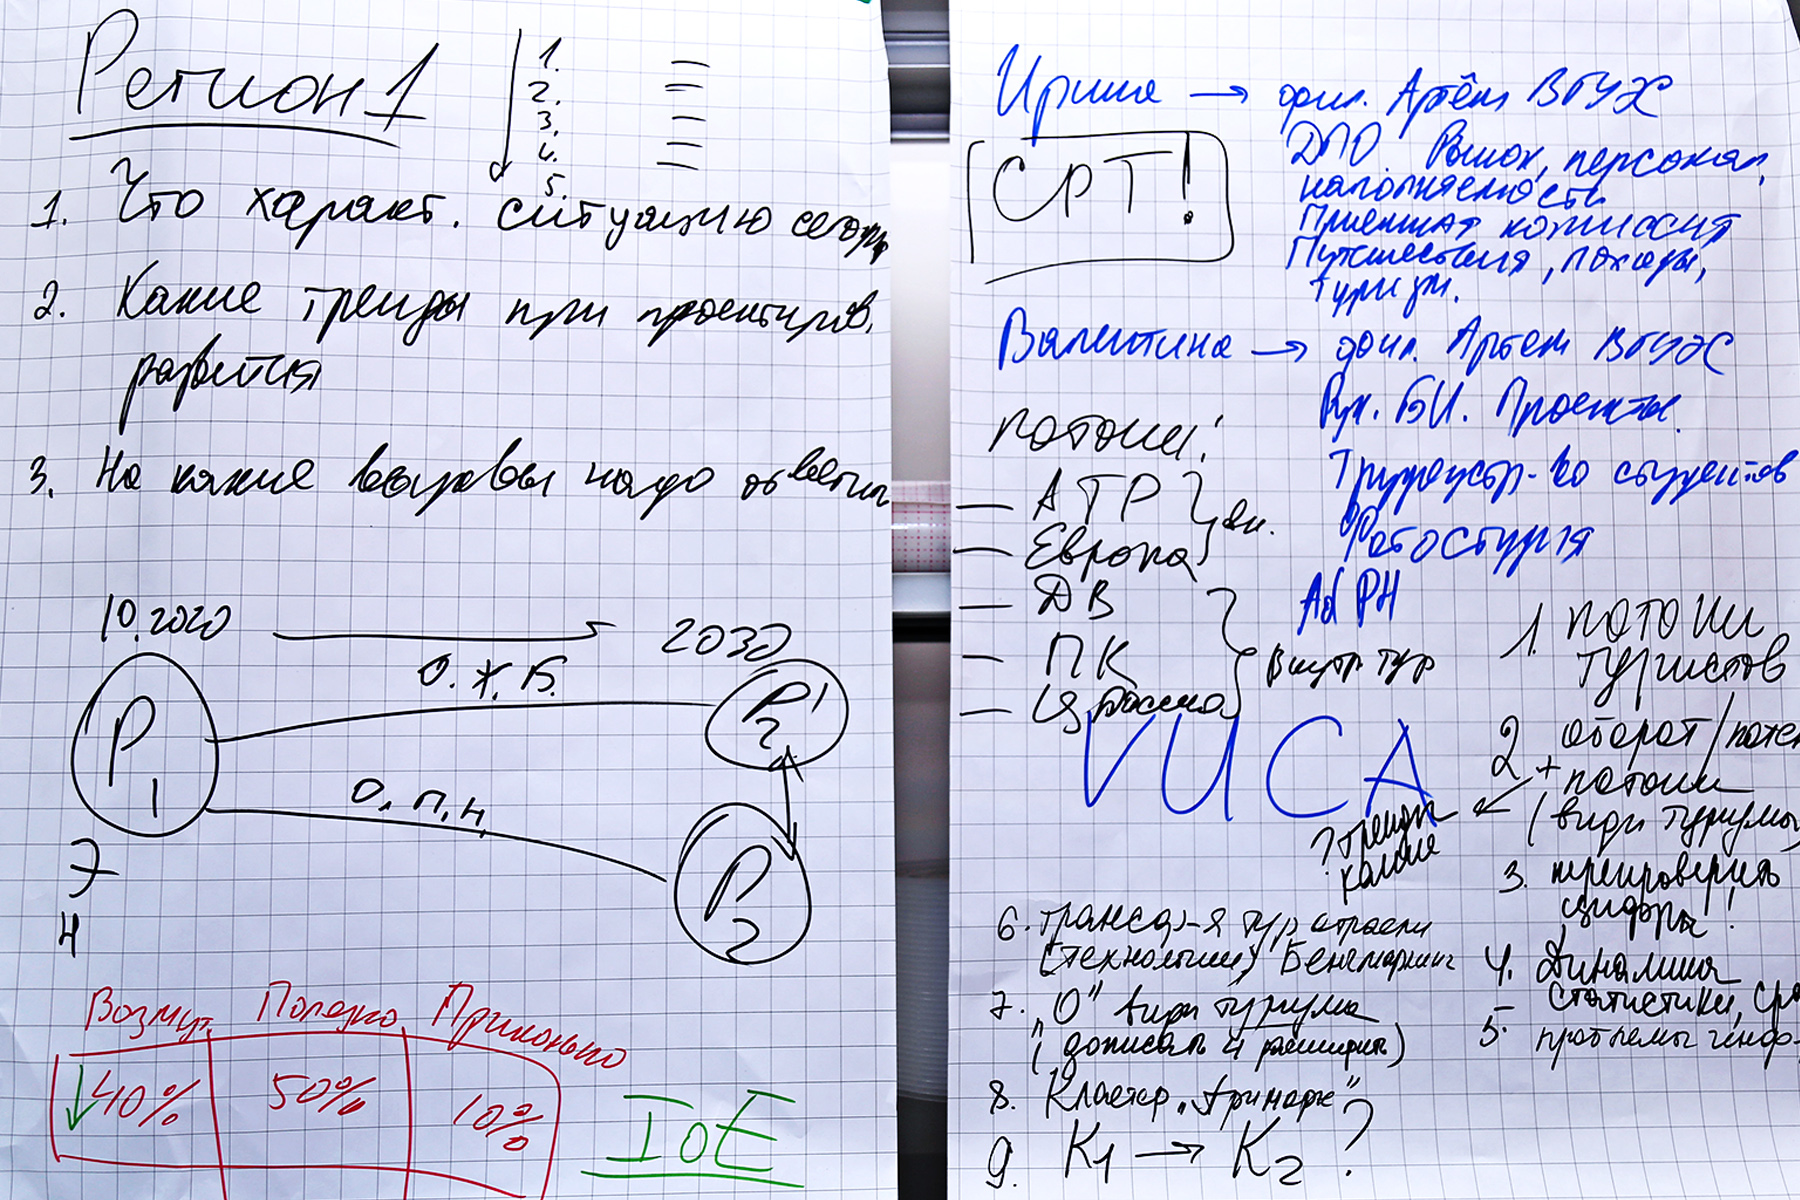 Регион 1
1.
2.
3.
4.
5.
1. Что характ. ситуацию сегодн
2. Какие тренды при проектиров.
развития
3. На какие вызовы надо ответить
10.2020
2030
О. Ж. Б.
Р1
Р2'
О. П. Н.
Р2
Э
Ч
Возмущ. Полезно Прикольно
40% 50% 10%
IoE
Ирина → фил. Артём ВГУЭС
СРТ!
ДПО. Рынок, персонал,
наполняемость
Приемная комиссия
Путешествия, походы,
туризм.
Валентина → фил. Артем ВГУЭС
Рук. БИ. Проекты.
Трудоустр-во студентов
Фотостудия
АбРН
потоки!
— АТР
— Европа
вн.
— ДВ
— ПК
— Ц Россия
Внутр тур
VUCA
? тренды
какие
1. потоки
туристов
2 оборот/потен
+ потоки
(виды туризма)
3. перепроверить
цифры!
4. Динамика
статистики, сра
5. проблемы инфр-
6. трансф-я тур отрасли
(технологии) Бенчмаркинг
7. "О" виды туризма
(дописать и расширить)
8. Кластер "Приморье"
9. К1 → К2 ?